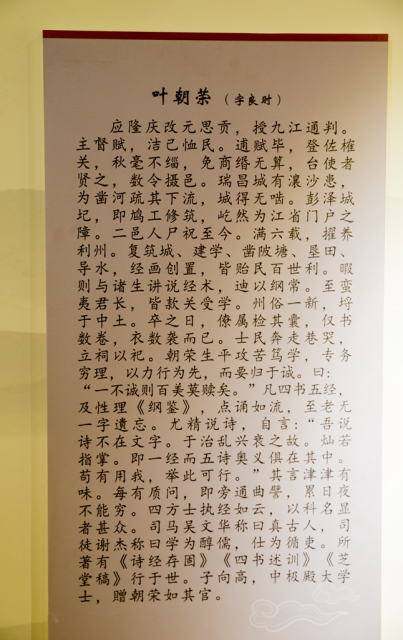 叶朝荣（字良时）
应隆庆改元恩贡，授九江通判。
主督赋，洁已恤民。逋赋毕，登佐榷
关，秋毫不缁，免商缗无算，台使者
贤之，数令摄邑。瑞昌城有瀼沙患，
为凿河疏其下流，城得无啮。彭泽城
圮，即鸠工修筑，屹然为江省门户之
障。二邑人尸祝至今。满六载，擢养
利州。复筑城、建学、凿陂塘、垦田、
导水，经画创置，皆贻民百世利。暇
则与诸生讲说经术，迪以纲常。至蛮
夷君长，皆款关受学。州俗一新，埒
于中土。卒之日，僚属检其囊，仅书
数卷，衣数袭而已。士民奔走巷哭，
立祠以祀。朝荣生平攻苦笃学，专务
穷理，以力行为先，而要归于诚。曰：
“一不诚则百美莫赎矣。”凡四书五经，
及性理《纲鉴》，点诵如流，至老无
一字遗忘。尤精说诗，自言：“吾说
诗不在文字。于治乱兴衰之故。灿若
指掌。即一经而五诗奥义俱在其中。
苟有用我，举此可行。”其言津津有
味。每有质问，即旁通曲譬，累日夜
不能穷。四方士执经如云，以科名显
者甚众。司马吴文华称曰真古人，司
徒谢杰称曰学为醇儒，仕为循吏。所
著有《诗经存固》《四书述训》《芝
堂稿》行于世。子向高，中极殿大学
士，赠朝荣如其官。